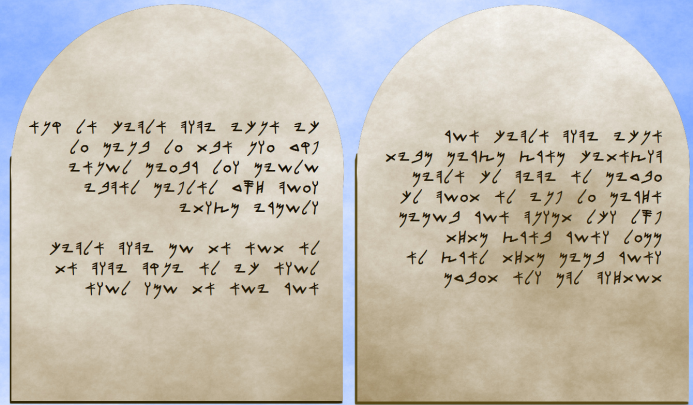 𐤀𐤍𐤊𐤉 𐤉𐤄𐤅𐤄 𐤀𐤋𐤄𐤉𐤊 𐤀𐤔𐤓
𐤄𐤅𐤑𐤀𐤕𐤉𐤊 𐤌𐤀𐤓𐤑 𐤌𐤑𐤓𐤉𐤌 𐤌𐤁𐤉𐤕
𐤏𐤁𐤃𐤉𐤌 𐤋𐤀 𐤉𐤄𐤉𐤄 𐤋𐤊 𐤀𐤋𐤄𐤉𐤌
𐤀𐤇𐤓𐤉𐤌 𐤏𐤋 𐤐𐤍𐤉 𐤋𐤀 𐤕𐤏𐤔𐤄 𐤋𐤊
𐤐𐤎𐤋 𐤅𐤊𐤋 𐤕𐤌𐤅𐤍𐤄 𐤀𐤔𐤓 𐤁𐤔𐤌𐤉𐤌
𐤌𐤌𐤏𐤋 𐤅𐤀𐤔𐤓 𐤁𐤀𐤓𐤑 𐤌𐤕𐤇𐤕
𐤅𐤀𐤔𐤓 𐤁𐤌𐤉𐤌 𐤌𐤕𐤇𐤕 𐤋𐤀𐤓𐤑 𐤋𐤀
𐤕𐤔𐤕𐤇𐤅𐤄 𐤋𐤄𐤌 𐤅𐤋𐤀 𐤕𐤏𐤁𐤃𐤌
𐤊𐤉 𐤀𐤍𐤊𐤉 𐤉𐤄𐤅𐤄 𐤀𐤋𐤄𐤉𐤊 𐤀𐤋 𐤒𐤍𐤀
𐤐𐤒𐤃 𐤏𐤅𐤍 𐤀𐤁𐤕 𐤏𐤋 𐤁𐤍𐤉𐤌 𐤏𐤋
𐤔𐤋𐤔𐤉𐤌 𐤅𐤏𐤋 𐤓𐤁𐤏𐤉𐤌 𐤋𐤔𐤍𐤀𐤉
𐤅𐤏𐤔𐤄 𐤇𐤎𐤃 𐤋𐤀𐤋𐤐𐤉𐤌 𐤋𐤀𐤄𐤁𐤉
𐤅𐤋𐤔𐤌𐤓𐤉 𐤌𐤑𐤅𐤕𐤉
𐤋𐤀 𐤕𐤔𐤀 𐤀𐤕 𐤔𐤌 𐤉𐤄𐤅𐤄 𐤀𐤋𐤄𐤉𐤊
𐤋𐤔𐤅𐤀 𐤊𐤉 𐤋𐤀 𐤉𐤍𐤒𐤄 𐤉𐤄𐤅𐤄 𐤀𐤕
𐤀𐤔𐤓 𐤉𐤔𐤀 𐤀𐤕 𐤔𐤌𐤅 𐤋𐤔𐤅𐤀